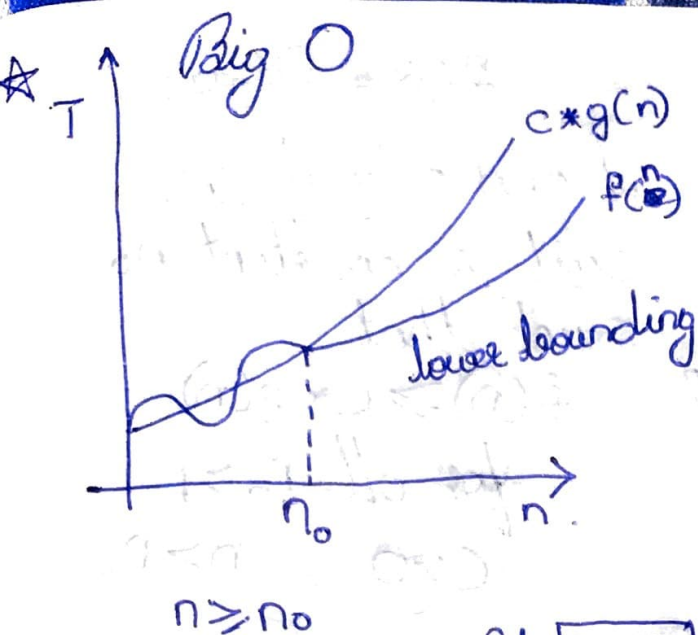 Big O
☆ T
c*g(n)
f(n)
lower bounding
n₀
n
n ≥ n₀